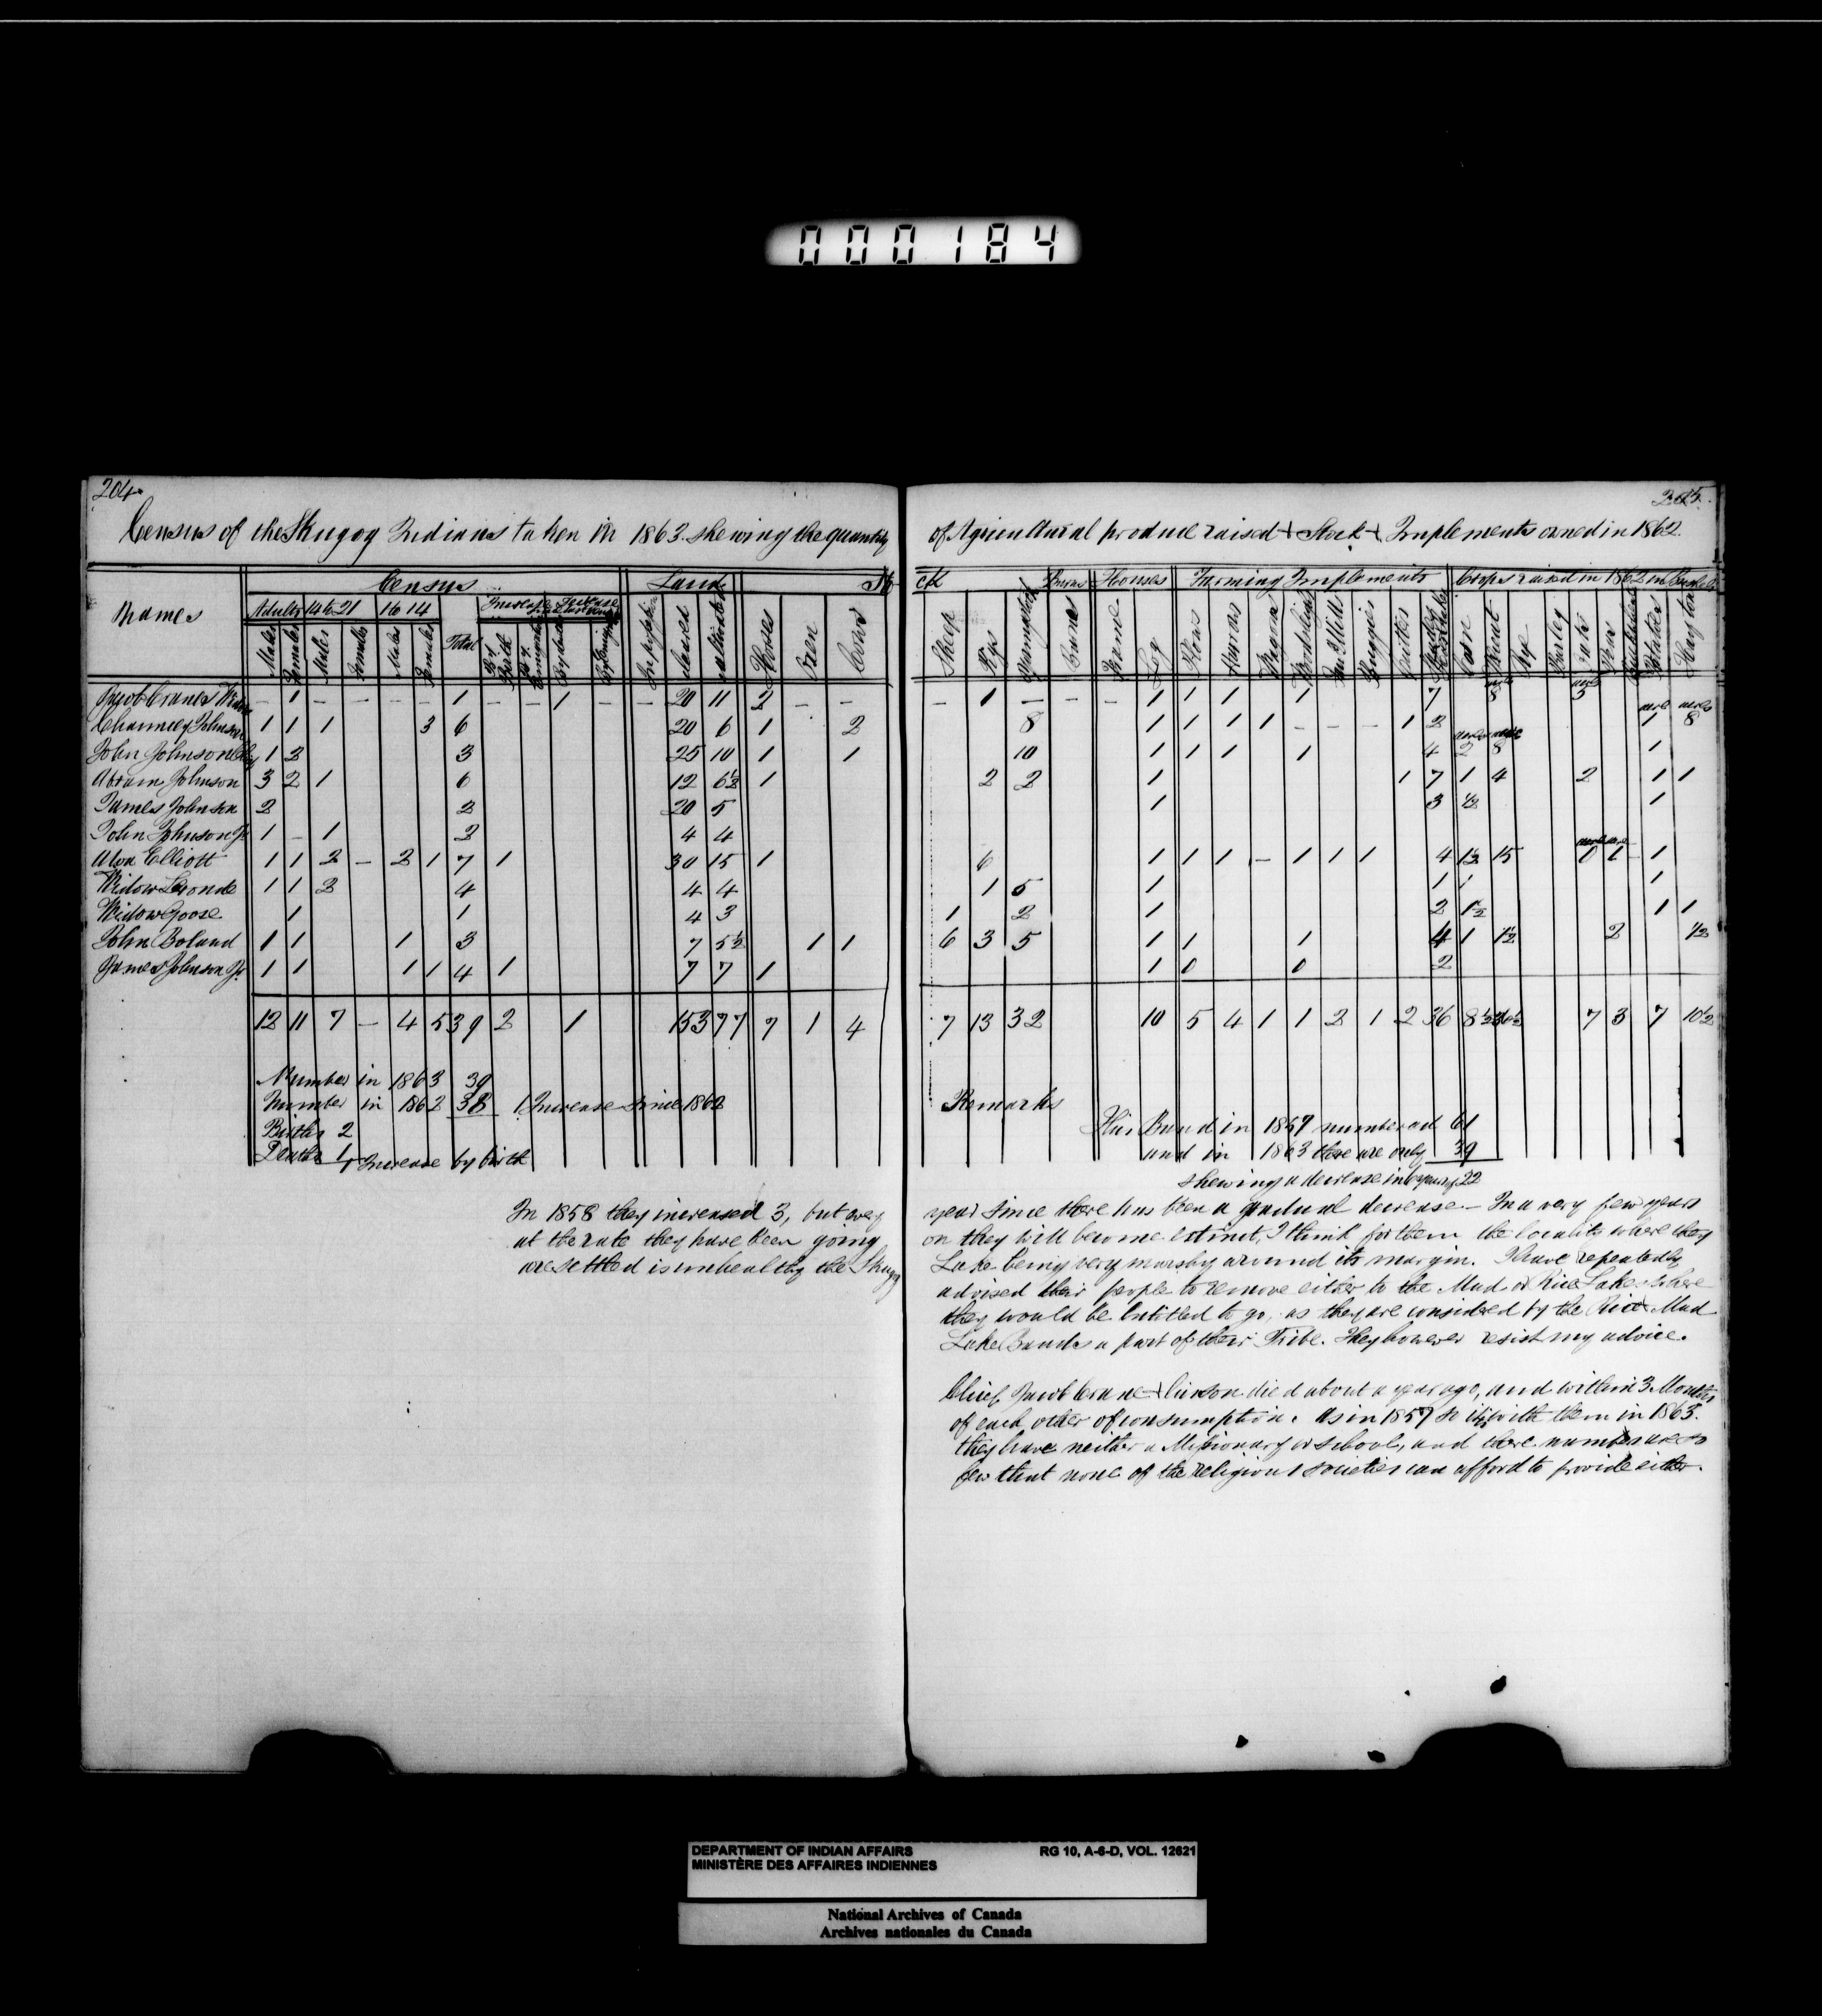 000184
204
205
Census of the Skugog Indians taken in 1863. shewing the quantity of Agricultural produce raised + Stock + Implements owned in 1862.
Names Census Land Stock Barns Houses Farming Implements Crops raised in 1862 in Bushels
Adults 14 to 21 1 to 14 Total Increase Decrease
Males Females Males Females Males Females By Birth By By Cleared Cultivated Horses Oxen Cows Sheep Pigs Barns Frame Log Buggies Cutters Corn Wheat Rye Barley Oats Peas Potatoes Hay tons
Jacob Crane's Widow – 1 – – – – 1 – – 1 – – 20 11 2 – – – 1 – – – 1 1 1 1 7 8 3
Chauncey Johnson 1 1 1 3 6 20 6 1 2 8 1 1 1 1 – – – 1 2 1 8
John Johnson 1 2 3 25 10 1 1 10 1 1 1 1 4 2 8 1
Abram Johnson 3 2 1 6 12 6½ 1 2 2 1 1 7 1 4 2 1 1
James Johnson 2 2 20 5 1 3 ½ 1
John Johnson Jr 1 – 1 2 4 4
Alva Elliott 1 1 2 – 2 1 7 1 30 15 1 6 1 1 1 – 1 1 1 4 1½ 15 1
Widow 1 1 2 4 4 4 1 5 1 1 1 1
Widow Goose 1 1 4 3 1 2 1 2 1½ 1 1
John Boland 1 1 1 3 7 5½ 1 1 6 3 5 1 1 1 4 1 1½ 2 ½
James Johnson Jr. 1 1 1 1 4 1 7 7 1 1 0 0 2
12 11 7 – 4 5 39 2 1 153 77 7 1 4 7 13 32 10 5 4 1 1 2 1 2 36 8½ 7 3 7 10½
Number in 1863 39
Number in 1862 38 1 Increase since 1862
Births 2
Deaths 1
1 Increase by birth
Remarks
This Band in 1857 numbered 61
and in 1863 there are only 39
shewing a decrease in 6 years of 22
In 1858 they increased 3, but every year since there has been a gradual decrease – In a very few years
at the rate they have been going on they will become extinct, I think for them the locality where they
are settled is unhealthy the Skugog Lake being very marshy around its margin. I have repeatedly
advised their people to remove either to the Mud or Rice Lake where
they would be entitled to go, as they are considered by the Rice & Mud
Lake Bands a part of their Tribe. They however resist my advice.
Chief Jacob Crane & his son died about a year ago, and within 3 Months
of each other of consumption. As in 1857 so it is with them in 1863.
they have neither a Missionary or school, and there numbers are so
few that none of the religious societies can afford to provide either.
DEPARTMENT OF INDIAN AFFAIRS RG 10, A-6-D, VOL. 12621
MINISTÈRE DES AFFAIRES INDIENNES
National Archives of Canada
Archives nationales du Canada